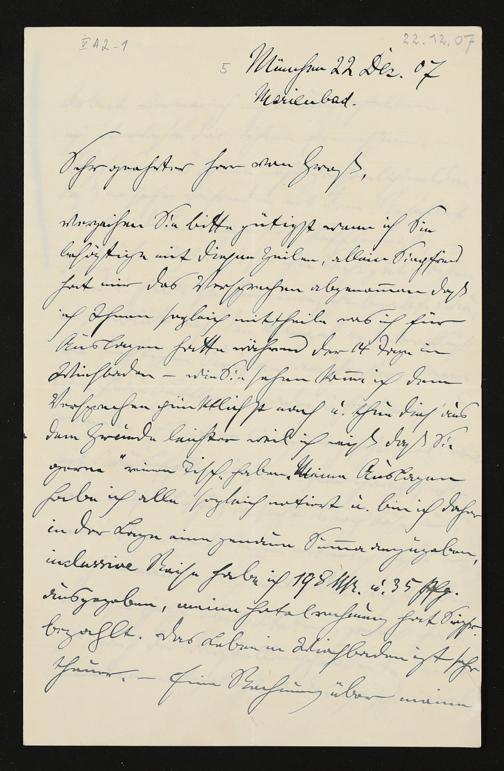 V A2-1
22.12.07
5 München 22 Dez. 07
Marienbad.
Sehr geehrter Herr von Groß,
verzeihen Sie bitte gütigst wenn ich Sie
belästige mit diesen Zeilen, allein Siegfried
hat mir das Versprechen abgenommen daß
ich Ihnen sogleich mittheile was ich für
Auslagen hatte während der 14 Tage in
Wiesbaden – wie Sie sehen komme ich dem
Versprechen pünktlichst nach u. thue dies aus
dem Grunde leichter weil ich weiß daß Sie
gerne "reinen Tisch" haben. Meine Auslagen
habe ich alle sogleich notirt u. bin ich daher
in der Lage eine genaue Summe anzugeben,
inclussive Reise habe ich 198 Mk. u. 35 Pfg.
ausgegeben, meine Hotelrechnung hat Siegfr.
bezahlt. Das Leben in Wiesbaden ist sehr
theuer. – Eine Rechnung über meine